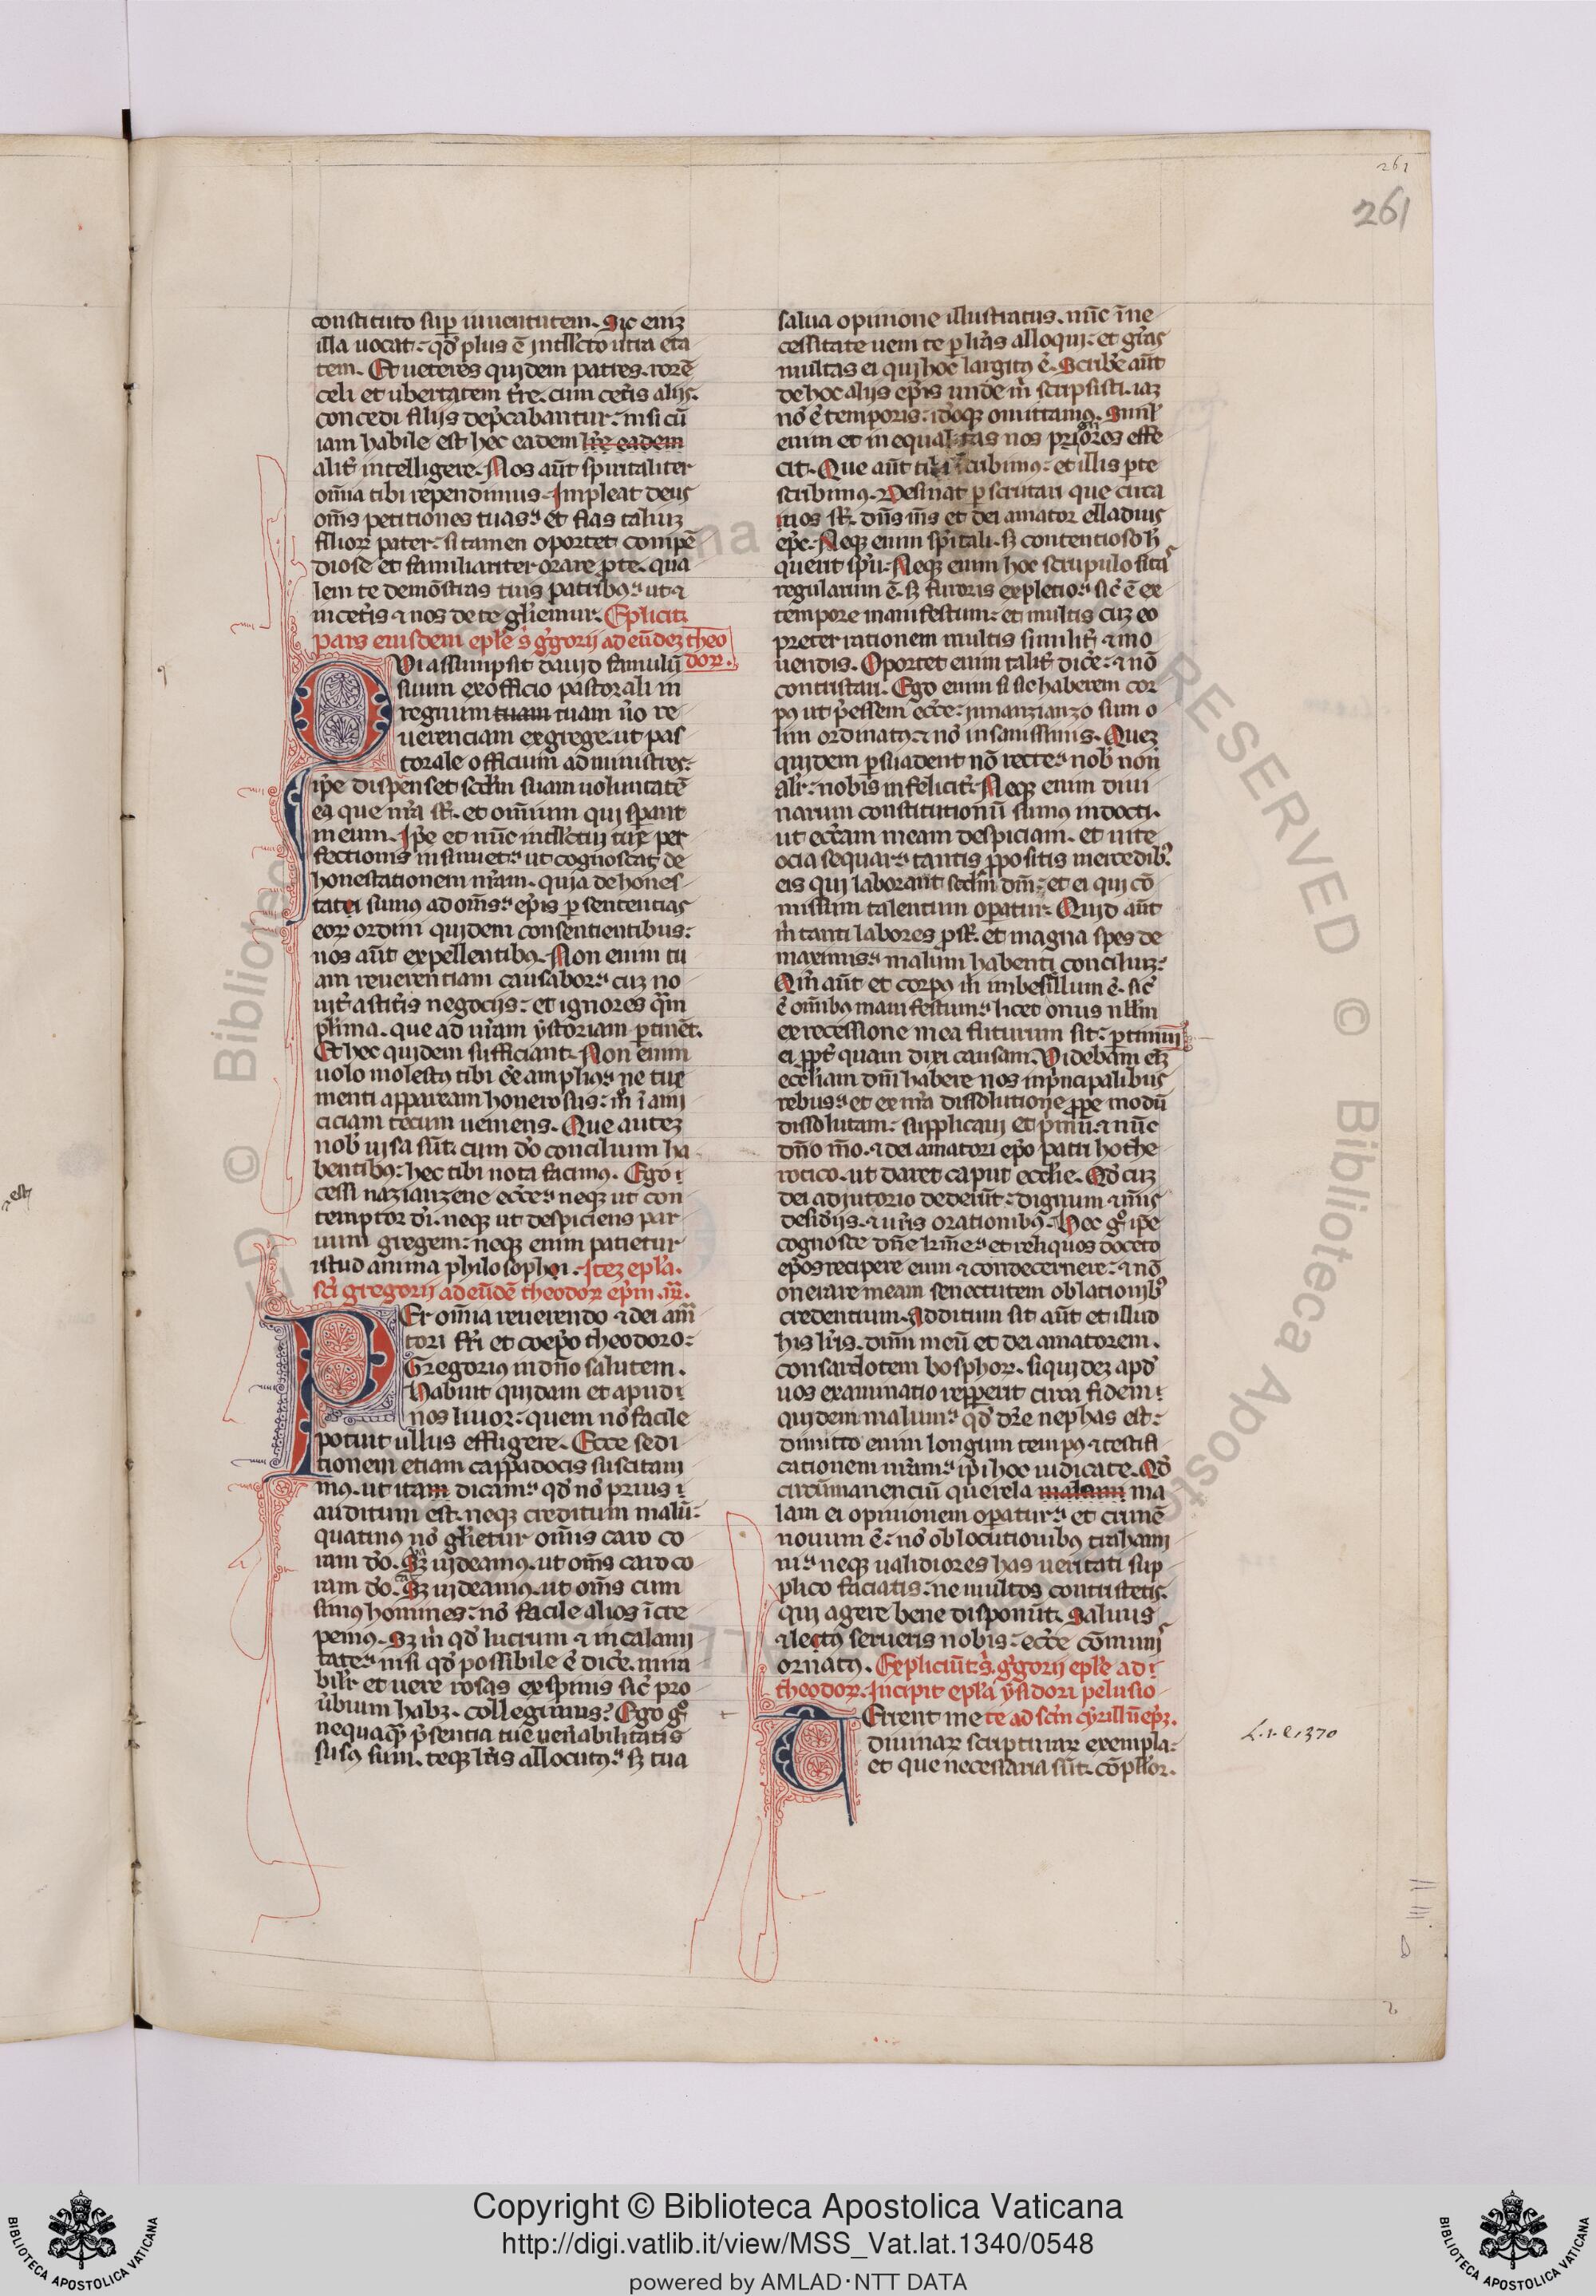 261
261
constituto suꝑ iuuentutem. Sic eniꝫ
illa uocat: qđ plus ē intll̃cto utia eta
tem. Et ueteres quidem patres. rorē
celi et ubertatem t̃re. cum cet̃is alijs.
concedi filijs dep̃cabantur: nisi cū
iam habile est hec eadem
alit̃ intelligere. Nos aũt spiritaliter
om̃ia tibi rependimus. Impleat deus
om̃s petitiones tuas: et fias taliuꝫ
filioꝝ pater: si tamen oportet compē
diose et familiariter orare ꝓ te. qua
lem te demōstras tuis patribꝰ: ut ⁊
in cet̃is ⁊ nos de te gl̃iemur. Explicit
pars eiusdem epl̃e s̃ g̃gorij ad eūdeꝫ theo
doꝝ.
QUi assumpsit dauid famulū
suum ex officio pastorali in
regnum tuam tuam ũo re
uerenciam ex grege. ut pas
torale officium administres:
ip̃e dispenset scd̃m suam uoluntatē
ea que nr̃a st̃. et omnium qui sꝑant
in eum. Ip̃e et nũc intll̃ctui tue per
fectionis insinuet: ut cognoscat de
honestationem nr̃am. quia dehones
tati sumus ad om̃s: ep̃is ꝑ sententias
eoꝝ ordini quidem consentientibus:
nos aũt expellentibꝰ. Non enim tu
am reuerentiam causabor: cuꝫ no
uit̃ astit̃is negocijs: et ignores q̃m
pl̃ima. que ad ur̃am ystoriam ꝑtinēt.
Et hec quidem sufficiant. Non enim
uolo molestꝰ tibi ee amplius ne tue
menti appaream honerosus: in ami
ciciam tecum uemens. Que auteꝫ
nob̃ uisa sũt: cum dõ concilium ha
bentibꝰ: hec tibi nota facimꝰ. Ego
cessi nazianzene ecc̃e: neqꝫ ut con
temptor dĩ. neqꝫ ut despiciens par
uum gregem: neqꝫ enim patietur
istud anima philosophi. Iteꝫ epl̃a.
sc̃i gregorij ad eūdē theodoꝝ ep̃m .iii.
PEr om̃ia reuerendo ⁊ dei ama
tori fr̃i et coep̃o theodoro:
Gregorius in dño salutem.
Habuit quidam et apud
nos liuor: quem nō facile
potuit ullus effugere. Ecce sedi
tionem etiam cappadocis suscitaui
mꝰ. ut ita dicam: qđ nō prius
auditum est. neqꝫ creditum malũ:
quatinꝰ nō gl̃ietur om̃is caro co
ram dõ. Sꝫ uideamꝰ. ut om̃s caro co
ram dõ. Sꝫ uideamꝰ. ut om̃s cum
simꝰ homines: nō facile alios īcre
pemꝰ. Sꝫ m̃ qđ lucrum ⁊ in calami
tate: nisi qđ possibile ē dic̃e. mira
bilr̃ et uere rosas ex spinis sic̃ pro
ũbium habꝫ. collegimus: Ego gͦ
nequaq̃ p̃sentia tue uen̄abilitatis
usus sum. teqꝫ lr̃is allocutꝰ: sꝫ tua
salua opinione illustratus. nũc īne
cessitate ueni te ꝑ lr̃as alloqui: et gr̃as
multas ei qui hoc largitꝰ ē. Scribe aũt
de hoc alijs ep̃is unde m̃ scripsisti. iaꝫ
nō ē temporis: idoqꝫ omittamꝰ. Simil̃
enim et inequalitas nos priores effe
cit. Que aũt tibi scribimꝰ: et illis ꝑ te
scribimꝰ. Desinat ꝑscrutari que circa
nos st̃. dñs m̃s et dei amator elladius
ep̃c. Neqꝫ enim sp̃itali. sꝫ contentioso h̃
querit sp̃u. Neqꝫ enim hoc scrupulositas
regularum ē. sꝫ furoris expletio: sic̃ ē ex
tempore manifestum: et multis cuꝫ eo
preter rationem multis similit̃ ⁊ mo
uendis. Oportet enim talit̃ dic̃e: ⁊ nō
contristari. Ego enim si sic haberem cor
pꝰ ut p̃essem ecc̃e: in nanzianzo sum o
lim ordinatꝰ ⁊ nō in sanissimis. Queꝫ
quidem ꝑsuadent nō recte: nob̃ non
alr̃: nobis infelicit̃. Neqꝫ enim diui
narum constitutionū sumꝰ indocti.
ut ecc̃am meam despiciam. et uite
ocia sequar: tantis ꝓpositis mercedibꝰ
eis qui laborant scd̃m dñm: et ei qui cō
missum talentum oꝑatur. Quid aũt
m̃ tanti labores ꝓ st̃. et magna spes de
maximis: malum habenti conciliuꝫ:
Qm̃ aũt et corpꝰ m̃ imbesillum ē. sic̃
ē omnibꝰ manifestum: licet onus nll̃m
ex recessione mea futurum sit: ꝑtimui
ei ꝓpt̃ quam dixi causam. Videbam eiꝫ
eccl̃iam dñi habere nos in p̃ncipalibus
rebus: et ex nr̃a dissolutione ꝓpe modū
dissolutam: supplicaui et p̃mū ⁊ nũc
dño m̃o. ⁊ dei amatori ep̃o patri bothe
rotico. ut daret caput eccl̃ie. Qđ cuꝫ
dei adiutorio dederũt: dignum ⁊ m̃is
desid̃ijs. ⁊ ur̃is orationibꝰ. Hec gͦ ip̃e
cognosce dñe kr̃me: et reliquos doceto
ep̃os recipere eum ⁊ condecernere: ⁊ nō
onerare meam senectutem oblationibꝰ
credentium. Additum sit aũt et illud
his lr̃is. dñm meũ et dei amatorem.
consardotem bosphoꝝ. siquideꝫ apđ
uos examinatio repꝑerit circa fidem:
quidem malum: qđ dic̃e nephas est:
dimitto enim longum tempꝰ ⁊ testifi
cationem ur̃am: ip̃i hoc iudicate. Qđ
circūmanenciū querela malam ma
lam ei opinionem oꝑatur: et crimē
nouum ē: nō oblocutionibus trahami
ni: neqꝫ ualidiores has ueritati sup
plico faciatis: ne multos contristetis.
qui agere bene disponũt. Saluus
⁊ letꝰ serueris nobis: ecc̃e cōmunis
ornatꝰ. Expliciũt s̃. g̃gorij epl̃e ad
theodoꝝ. Incipit epl̃a ysidori pelusio
TErrent me te ad sc̃m cyrillū ep̃ꝫ.
diuinaꝝ scripturaꝝ exempla:
et que necessaria sũt. cōpll̃or.
L. 1. e. 1370
Copyright © Biblioteca Apostolica Vaticana
http://digi.vatlib.it/view/MSS_Vat.lat.1340/0548
powered by AMLAD·NTT DATA
BIBLIOTECA APOSTOLICA VATICANA
BIBLIOTECA APOSTOLICA VATICANA